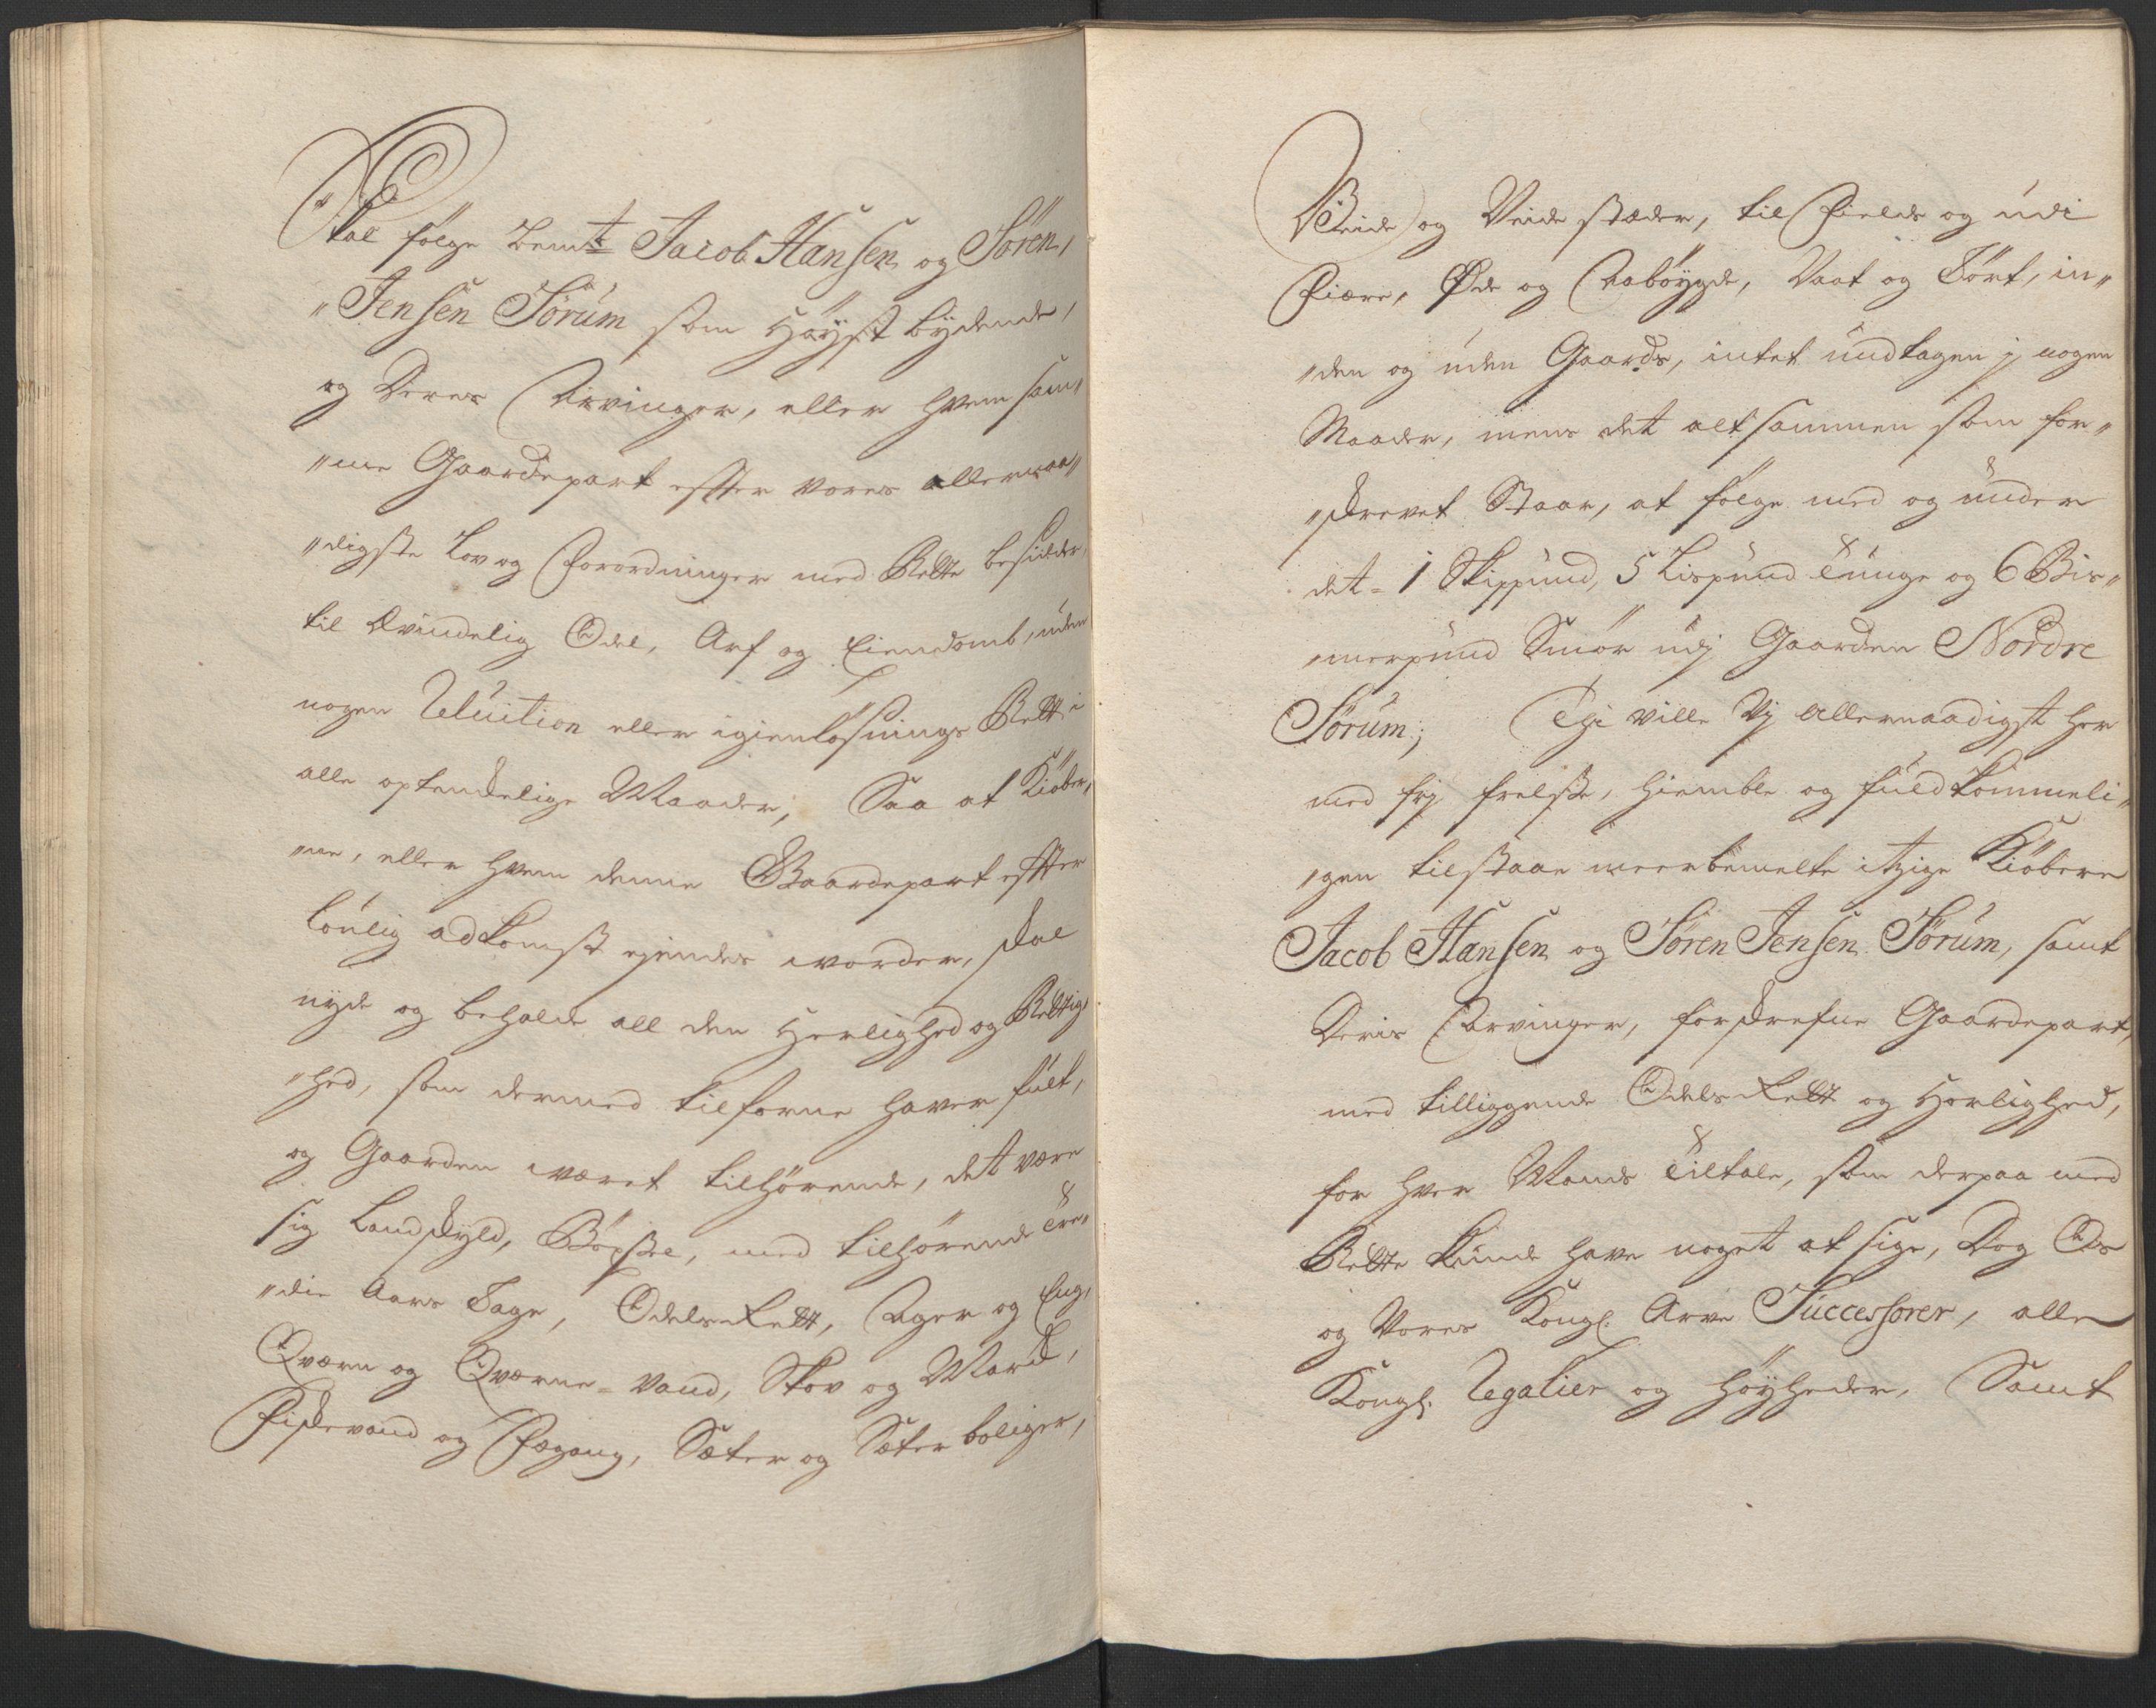 Skal følge bemte Jacob Hansen og Sören
"Jensen Sörum som Høyst bydende,
og Deres Arvinger, eller hvem sam"
"me Gaardepart effter vores allernaa"
"digste Lov og Forordninger med Rette besidder,
til Evindelig Odel, Arf og Eiendomb, uden
nogen Reluition eller igienløsnings Rett i
alle optenckelige Maader, Saa at Kiöber"
"ne, eller hvem denne Gaardepart effter
lovlig adkomst ejendes vorder, skal
nyde og beholde all den Herlighed og Rettig"
"hed, som dermed tilforne haver fult,
og Gaarden været tilhørende, det være
sig Landskyld, Böxsel, med tilhørende Tre"
"die Aars Tage, Odels Rett, Ager og Eng,
Qværn og Qværne-vand, Skov og Marck,
Fiskevand og Fægang, Sæter og Sæterboliger,
Veide og Veide stæder, til Fields og udi
Fiære, Øde og Aabøygde, Vaat og Tört, in"
"den og uden Gaards, intet undtagen j nogen
Maader, mens det altsammen som for"
"skrevet Staar, at følge med og under
det - 1 Skippund, 5 Lispund Tunge og 6 Bis"
"merpund Smör udj Gaarden Nordre
Sörum; Thi ville Vj allernaadigst her
med frj frelse, hiemble og fuldkommeli"
"gen tilstaae meerbemelte itzige Kiöbere
Jacob Hansen og Sören Jensen Sörum, samt
Deris Arvinger, forskrefne Gaardepart,
med tilliggende Odels Rett og Herlighed,
for hver Mands Tiltale, som derpaa med
Rette kunde have noget at sige, Dog Os
og Vores Kongl. Arve Successorer, alle
Kongl. Regalier og Høyheder, Samt